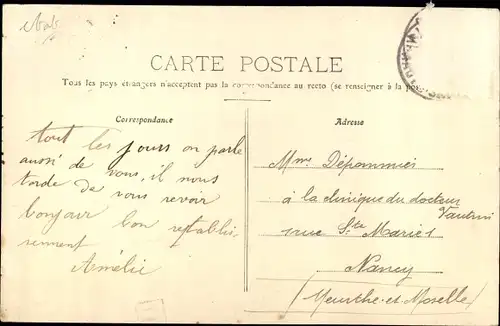 CARTE POSTALE
Tous les pays étrangers n'acceptent pas la correspondance au recto (se renseigner à la pos
Correspondance
tout les jours on parle
aussi de vous, il nous
tarde de vous revoir
bonjour bon restablis
sement
Amélie
Adresse
Mme Dépommier
à la clinique du docteur
Vautrin
rue Ste Maries
Nancy
(Meurthe-et-Moselle)